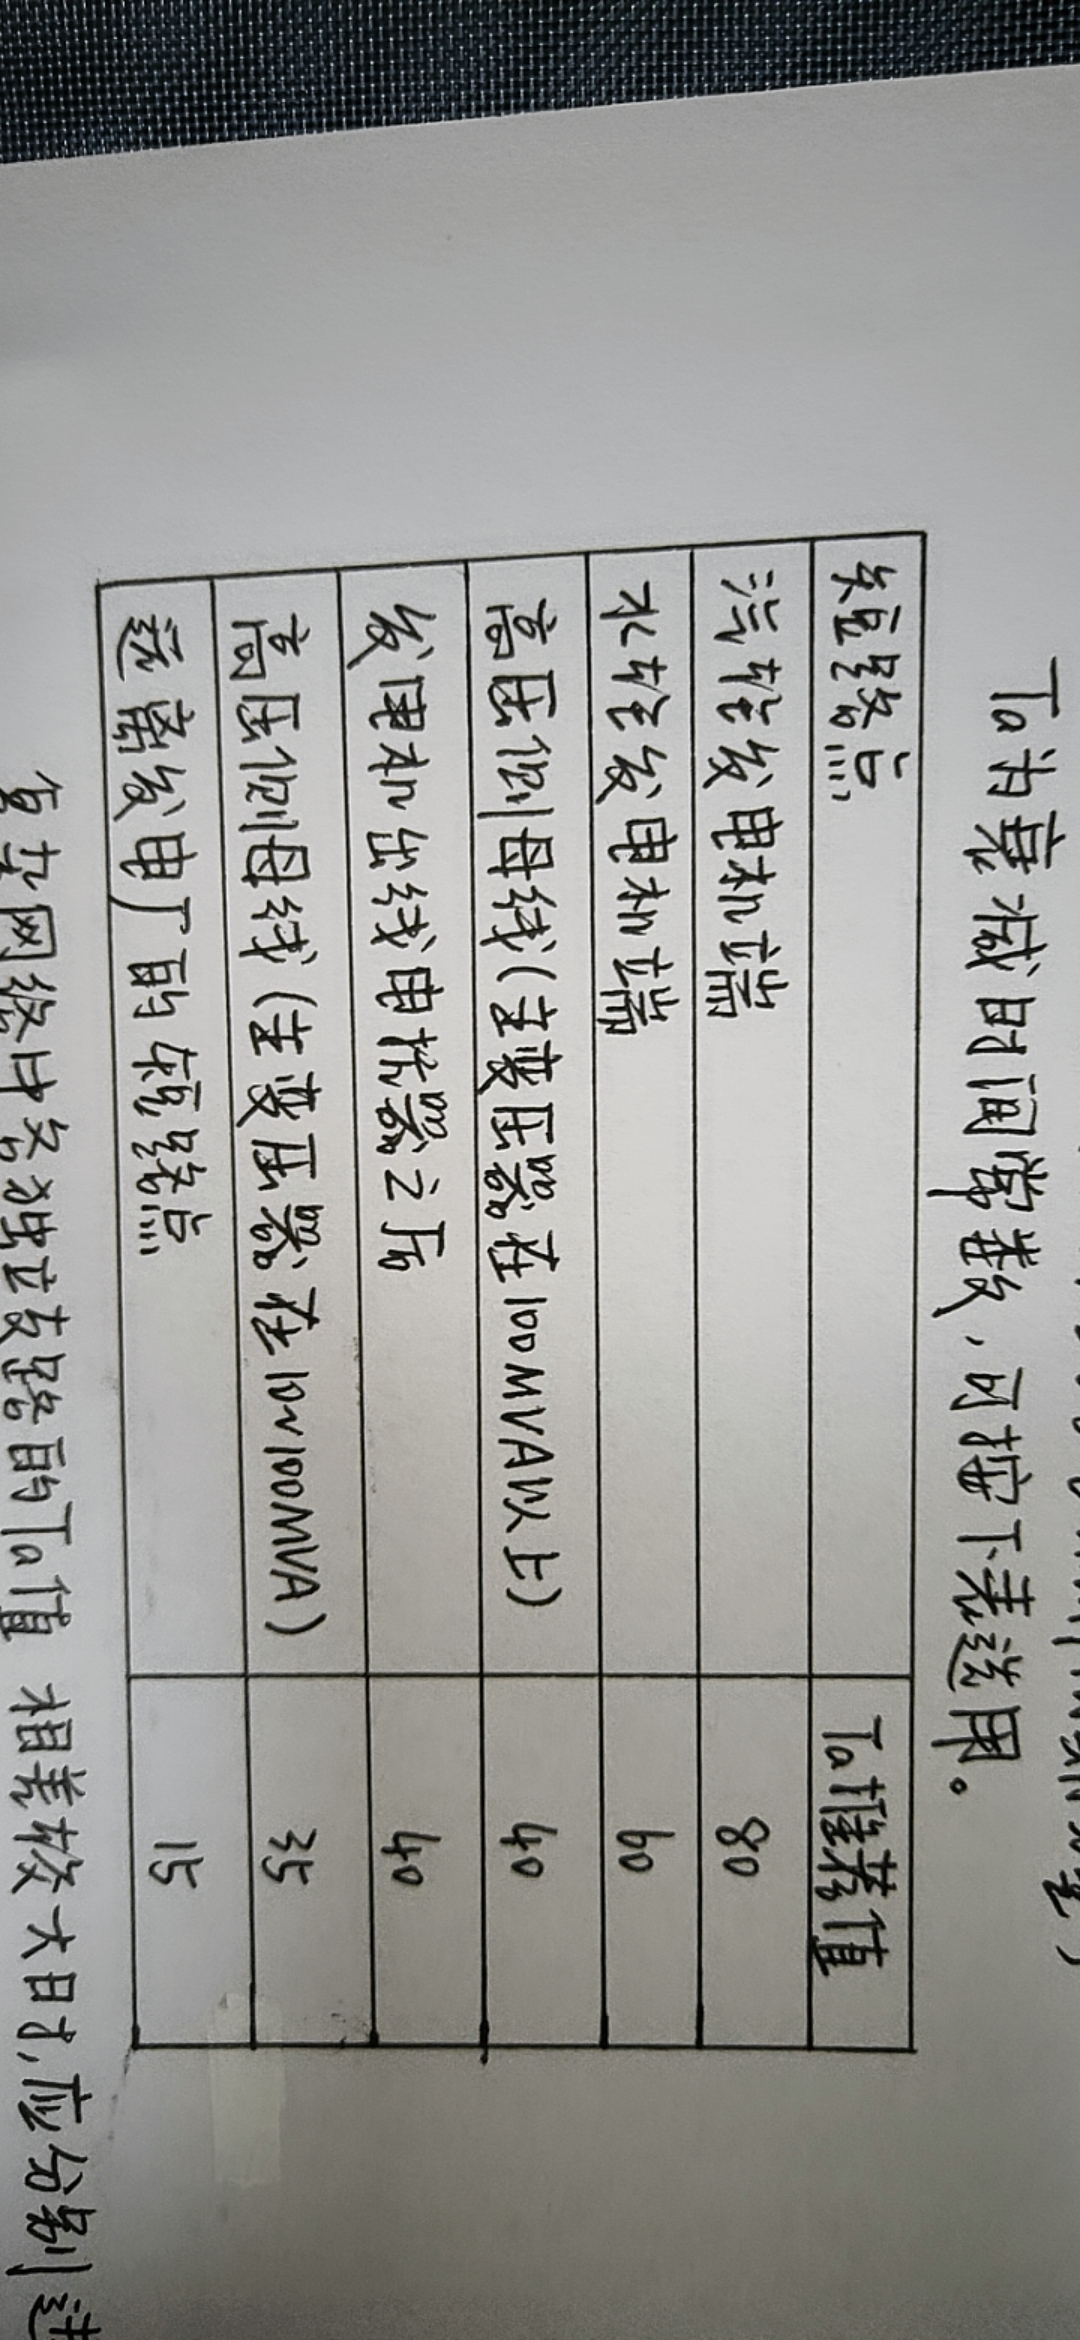 Ta为衰减时间常数,可按下表选用。
短路点 Ta推荐值
汽轮发电机端 80
水轮发电机端 60
高压侧母线(主变压器在100MVA以上) 40
发电机出线电抗器之后 40
高压侧母线(主变压器在10~100MVA) 35
远离发电厂的短路点 15
复杂网络中各独立支路的Ta值 相差较大时,应分别进